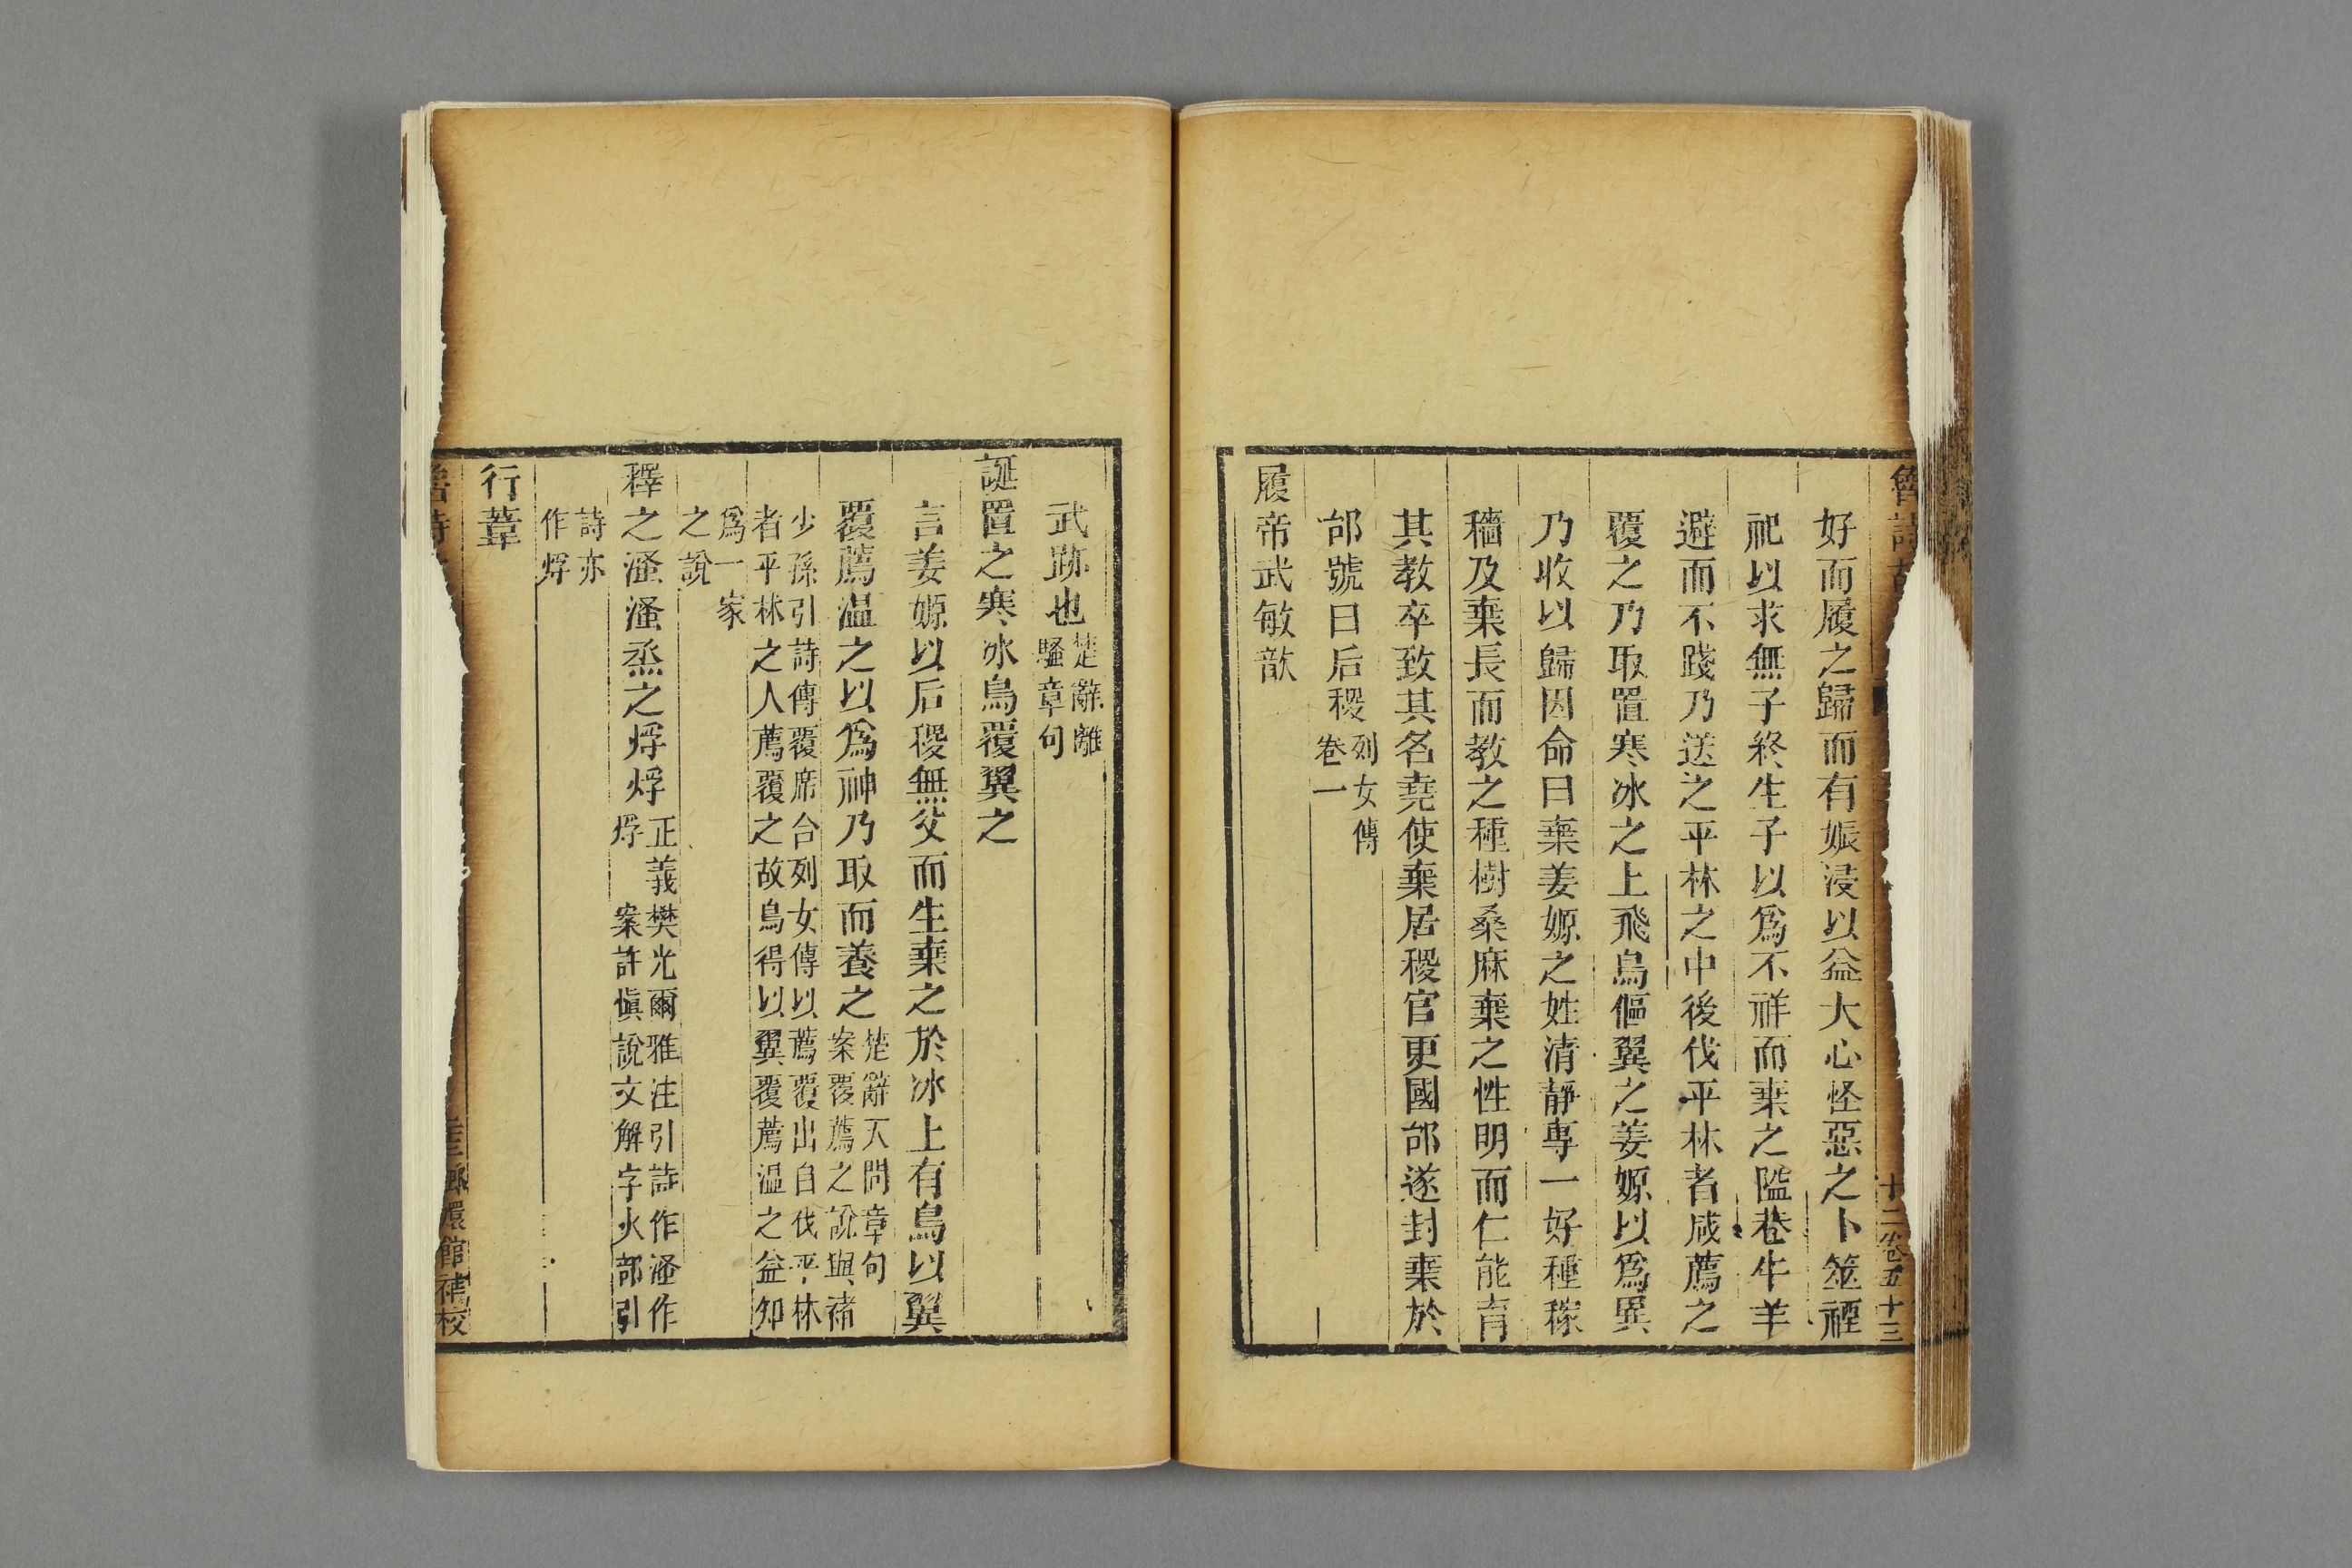 魯詩
十二卷五十三
好而履之歸而有娠浸以益大心怪惡之卜筮禋
祀以求無子終生子以爲不祥而棄之隘巷牛羊
避而不踐乃送之平林之中後伐平林者咸薦之
覆之乃取置寒冰之上飛鳥傴翼之姜嫄以爲異
乃收以歸因命曰棄姜嫄之姓清靜專一好種稼
穡及棄長而教之種樹桑麻棄之性明而仁能育
其教卒致其名堯使棄居稷官更國邰遂封棄於
邰號曰后稷列女傳卷一
履帝武敏歆
武跡也楚辭離騷章句
誕置之寒冰鳥覆翼之
言姜嫄以后稷無父而生棄之於冰上有鳥以翼
覆薦温之以爲神乃取而養之楚辭天問章句案覆薦之說與褚
少孫引詩傳覆席合列女傳以薦覆出自伐平林
者平林之人薦覆之故鳥得以翼覆薦温之益知
爲一家之說
釋之溞溞烝之烰烰正義樊光爾雅注引詩作溞作
烰 案許愼說文解字火部引
詩亦作烰
行葦
環館補校